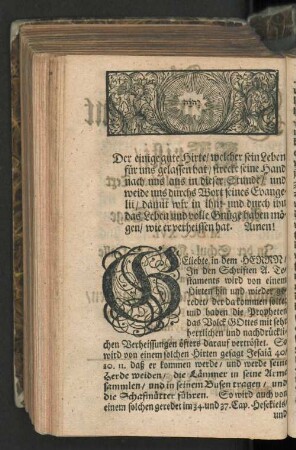 יהוה
Der einige gute Hirte/ welcher sein Leben
für uns gelassen hat/ strecke seine Hand
nach uns aus in dieser Stunde/ und
weide uns durchs Wort seines Evange-
lii/ damit wir in ihm und durch ihn
das Leben und volle Gnüge haben mö-
gen/ wie er verheissen hat. Amen!
GEliebte in dem HERRN/
In den Schriften A. Te-
staments wird von einem
Hirten hin und wieder ge-
redet/ der da kommen solte;
und haben die Propheten
das Volck GOttes mit sehr
herrlichen und nachdrückli-
chen Verheissungen öfters darauf vertröstet. So
wird von einem solchen Hirten gesagt Jesaiä 40/
10. 11. daß er kommen werde/ und werde seine
Heerde weiden/ die Lämmer in seine Arme
sammlen/ und in seinem Busen tragen/ und
die Schafmütter führen. So wird auch von
einem solchen geredet im 34. und 37. Cap. Hesekiels/
und